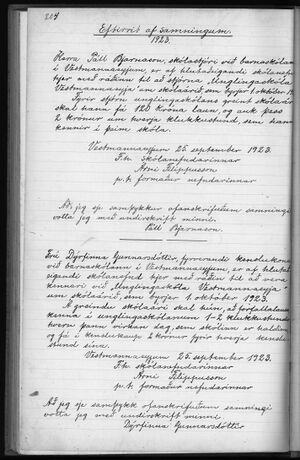 204
Eftirrit af samningum.
1923.
Herra Páll Bjarnason, skólastjóri við barnaskólann
í Vestmannaeyjum, er af hlutaðeigandi skólanefnd
hjer með ráðinn til að stjórna Unglingaskóla
Vestmannaeyja um skólaárið, sem byrjar 1. október 19
Fyrir stjórn unglingaskólans greint skólaár
skal hann fá 120 króna laun, og auk þess
2 krónur um hverja klukkustund, sem hann
kennir í þeim skóla.
Vestmannaeyjum 25. september 1923.
F.h. skólanefndarinnar
Árni Filippusson
p.t. formaður nefndarinnar
Að jeg sje samþykkur ofanskrifuðum samningi
votta jeg með undirskrift minni.
Páll Bjarnason.
Frú Dýrfinna Gunnarsdóttir, fyrverandi kenslukona
við barnaskólann í Vestmannaeyjum, er af hlutað-
eigandi skólanefnd hjer með ráðin til að vera
kennari við Unglingaskóla Vestmannaeyja
um skólaárið, sem byrjar 1. október 1923.
Á greindu skólaári skal hún, að forfallalausu
kenna í unglingaskólanum 1-2 klukkustundir
hvern þann virkan dag, sem skólinn er haldinn
og fá í kenslukaup 2 krónur fyrir hverja kenslu-
stund sína.
Vestmannaeyjum 25. september 1923.
F.h. skólanefndarinnar
Árni Filippusson
p.t. formaður nefndarinnar
Að jeg sje samþykk ofanskrifuðum samningi
votta jeg með undirskrift minni
Dýrfinna Gunnarsdóttir